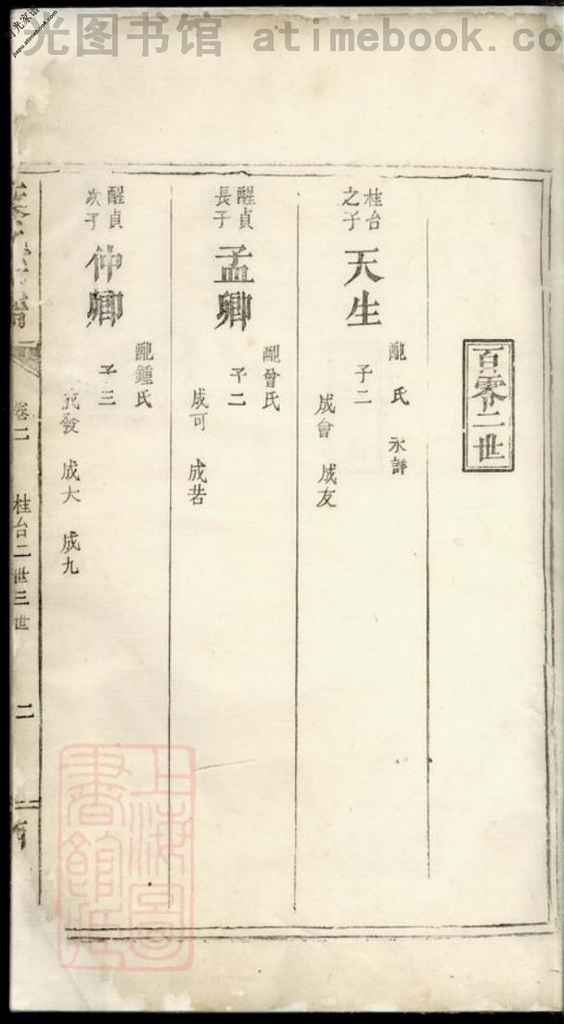 光图书馆 atimebook.co
百零二世
桂台
之子
天生
配 氏 永諱
子二
成會 成友
醒貞
長子
孟卿
配曾氏
子二
成可 成若
醒貞
次子
仲卿
配鍾氏
子三
成發 成大 成九
卷二 桂台二世三世 二
上海圖
書館